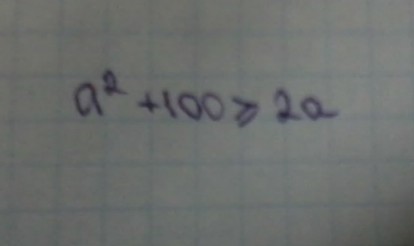 a² + 100 ⩾ 2a